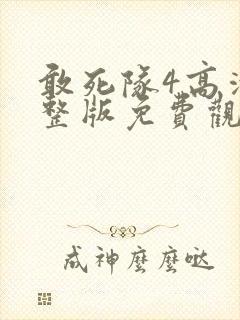 敢死隊4高清
整版免費觀
成神麼麼噠